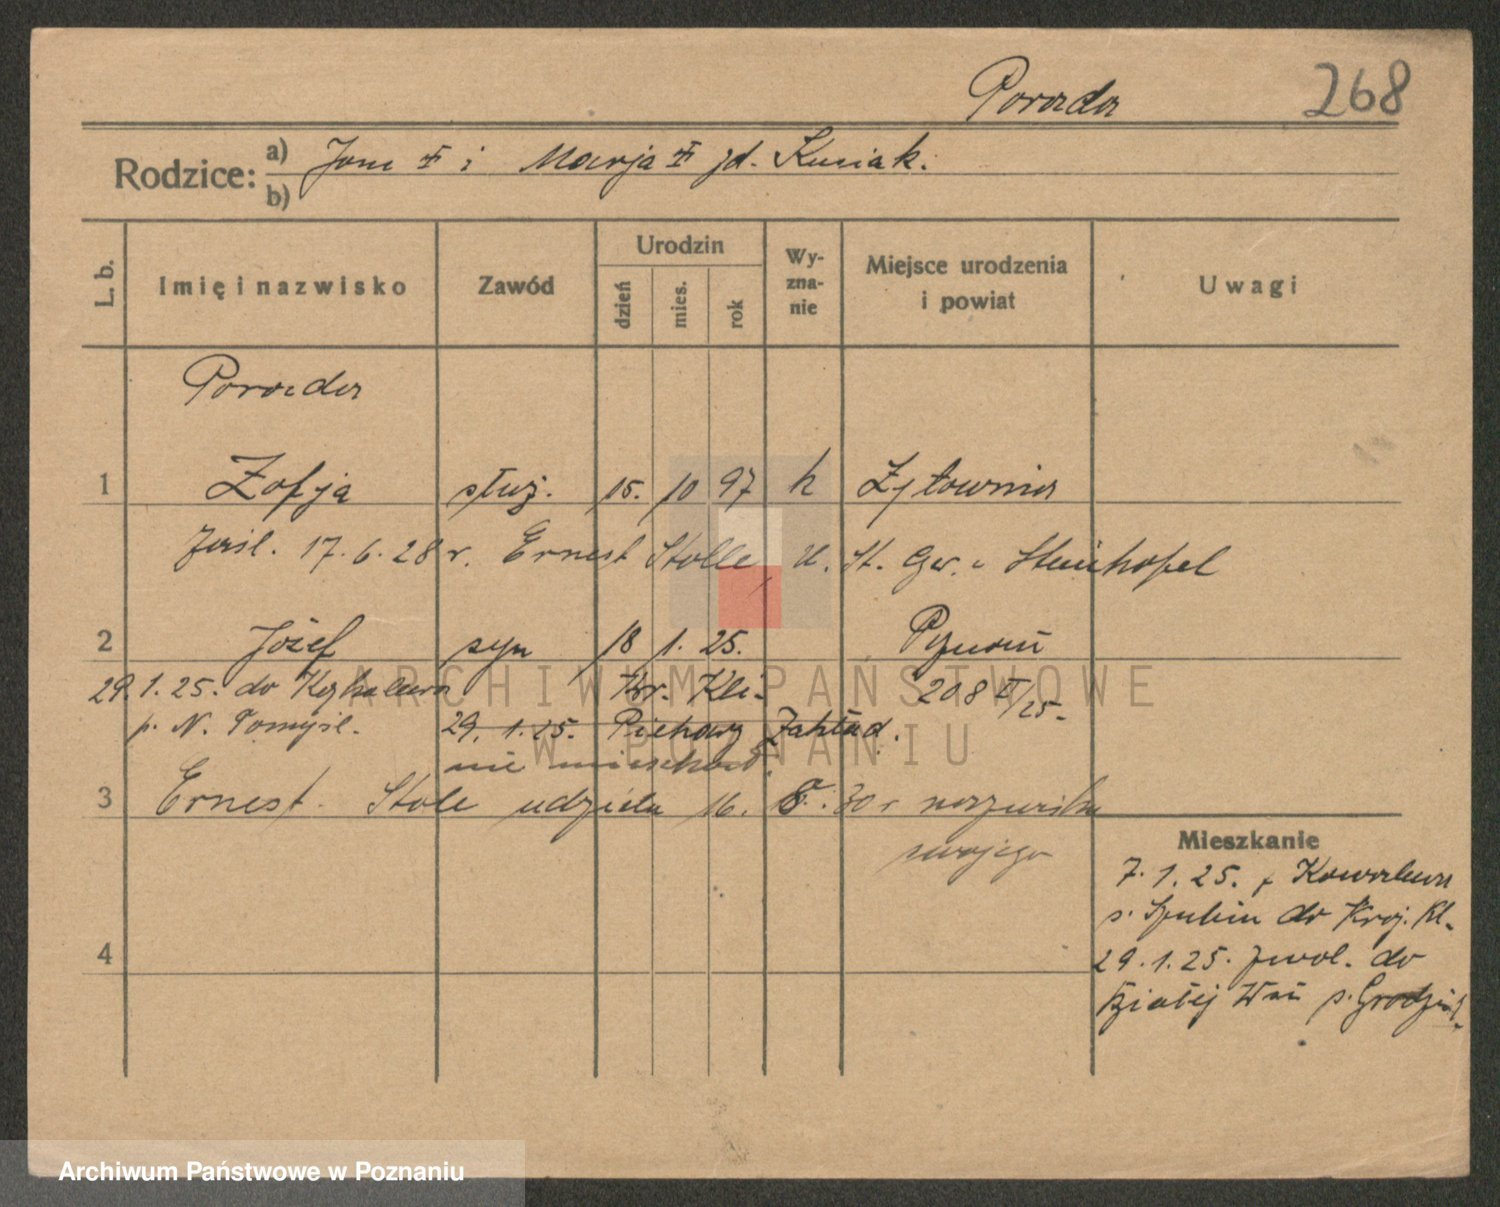 Porada 268
Rodzice: a) Jan i Marja zd. Kusiak.
b)
L. b. Imię i nazwisko Zawód Urodzin dzień mies. rok Wyznanie Miejsce urodzenia i powiat Uwagi
Porada
1 Zofja służ. 15. 10 97 k Żytownia
zaśl. 17. 6. 28 r. Ernest Stolle, u. St. Gw.
2 Józef syn 18 1. 25. Poznań
29.1.25. do 208 II/25.
p. N. Tomyśl. 29. 1. 25. Zakład.
nie mieszkać
3 Ernest Stole udziela 16. 30 r nazwiska
swojego
Mieszkanie
7. 1. 25. z
p. do Kl.
4 29.1.25. do
Białej Wsi p. Grodzisk.
ARCHIWUM PAŃSTWOWE
W POZNANIU
Archiwum Państwowe w Poznaniu